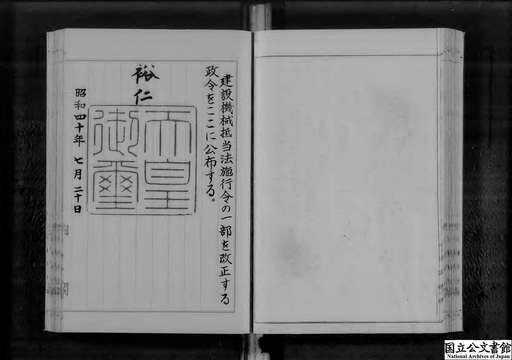 建設機械抵当法施行令の一部を改正する
政令をここに公布する。
裕仁
天皇御璽
昭和四十年七月二十日
内閣
国立公文書館
National Archives of Japan